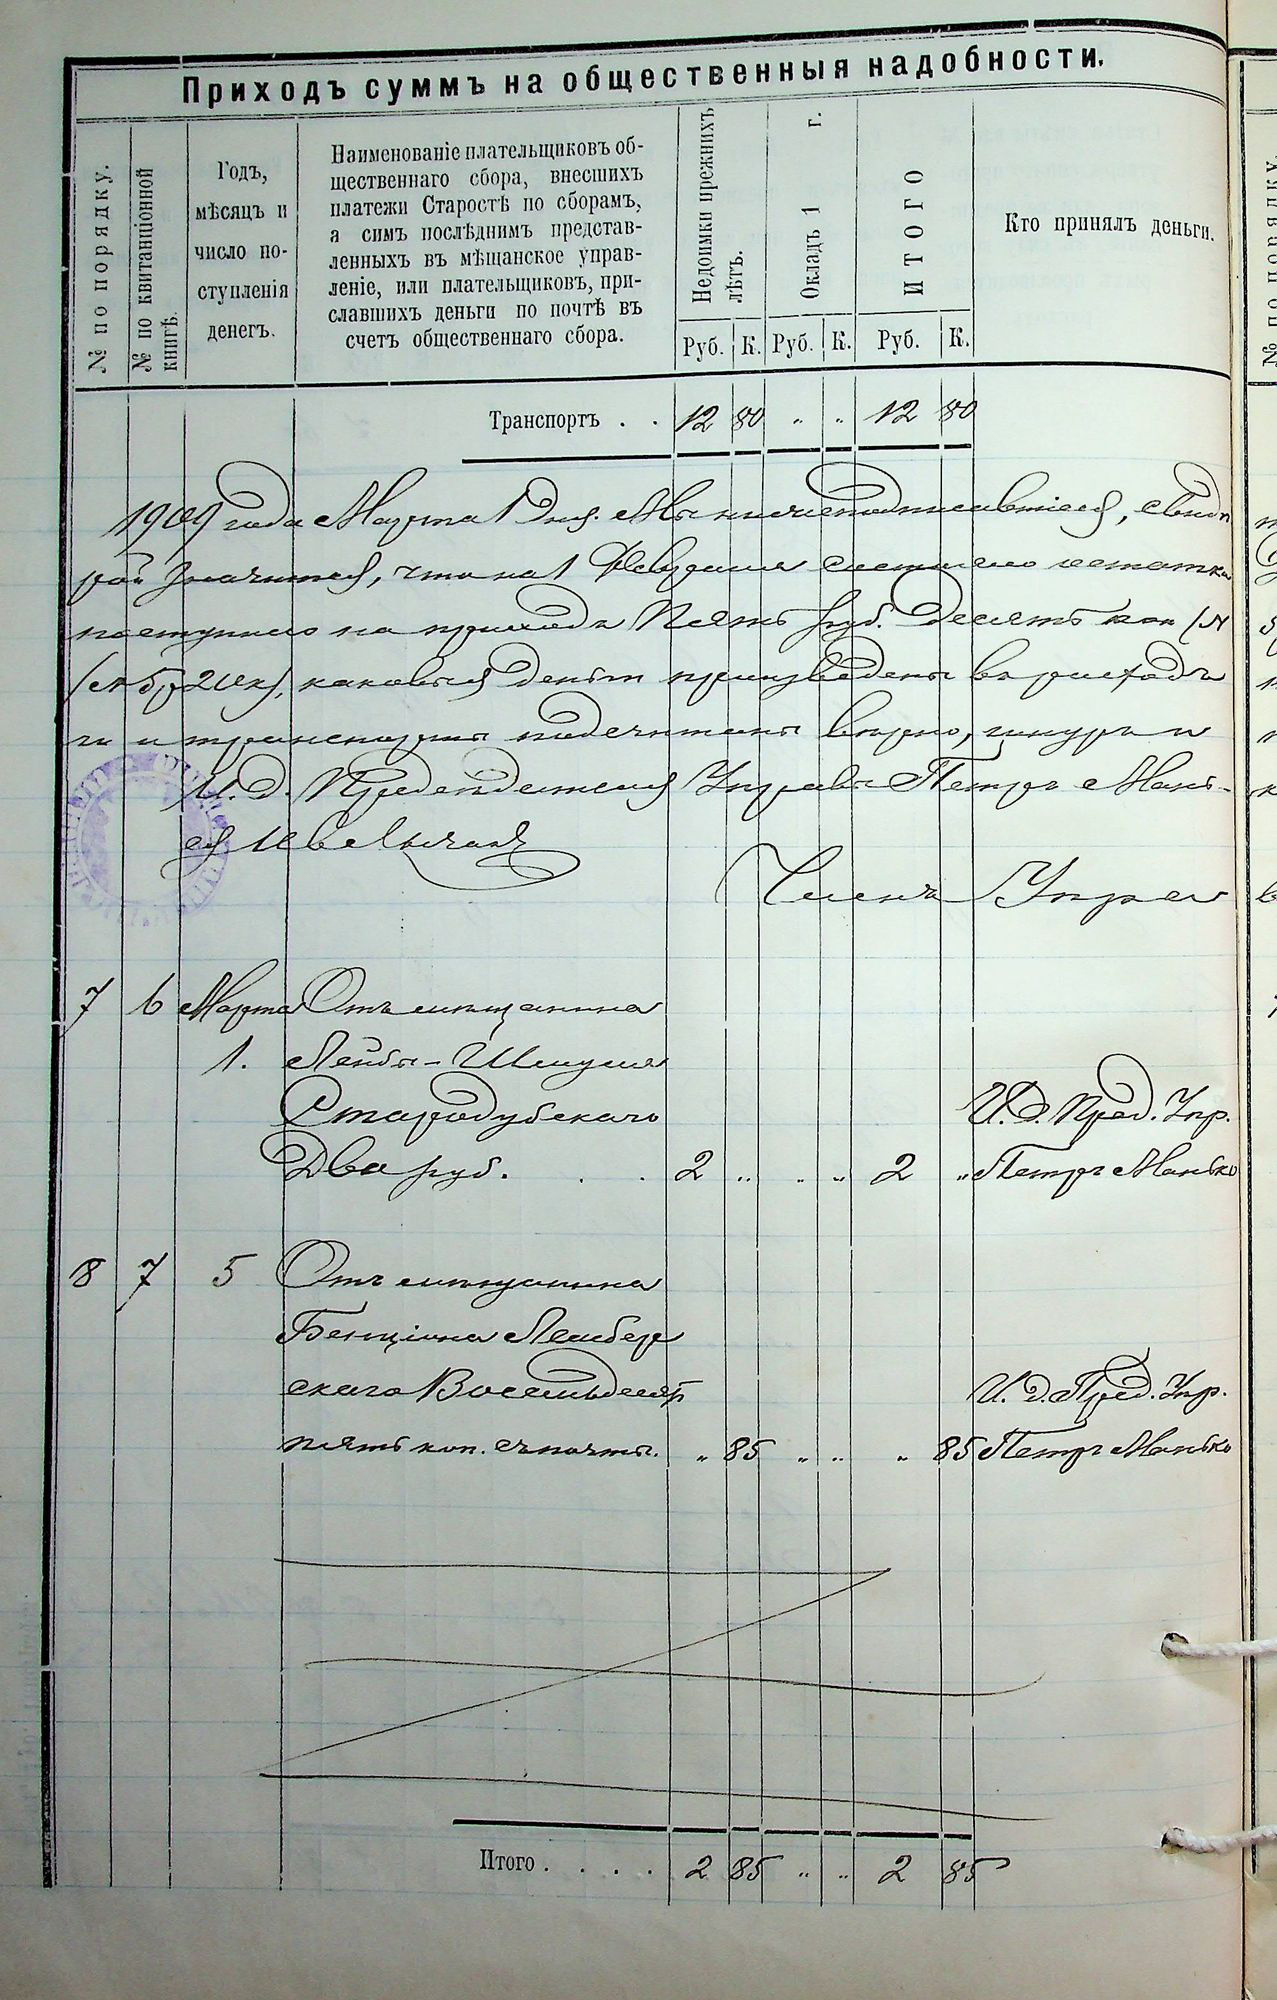 Приходъ суммъ на общественныя надобности.
№ по порядку.
№ по квитанціонной книгѣ.
Годъ,
мѣсяцъ и
число по-
ступленія
денегъ.
Наименованіе плательщиковъ об-
щественнаго сбора, внесшихъ
платежи Старостѣ по сборамъ,
а симъ послѣднимъ представ-
ленныхъ въ мѣщанское управ-
леніе, или плательщиковъ, при-
славшихъ деньги по почтѣ въ
счетъ общественнаго сбора.
Недоимки прежнихъ лѣтъ.
Окладъ 1 г.
ИТОГО
Кто принялъ деньги.
Руб. К. Руб. К. Руб. К.
Транспортъ . . 12 80 „ „ 12 80
1909 года Марта 1 дня. Мы нижеподписавшіеся, свид
рой значится, что на 1 Февраля состояло остатка
поступило на приходъ Пять руб. Десять коп (
каковыя деньги произведены въ расходъ
и транспорты подсчитаны вѣрно, шнуръ и
И. д. Председателя Управы Петръ Мань-
Членъ Управ
7 6 Марта Отъ мѣщанина
1. Лейбы-Шмуля
Стародубскаго
И. д. Пред. Упр.
Два руб. . . 2 „ „ „ 2 „ Петръ Манько
8 7 5 Отъ мѣщанина
Бенціона Лемберг
скаго Восемьдесятъ
И. д. Пред. Упр.
пять коп. съ почты. „ 85 „ „ „ 85 Петръ Манько
Итого . . . . 2 85 „ „ 2 85